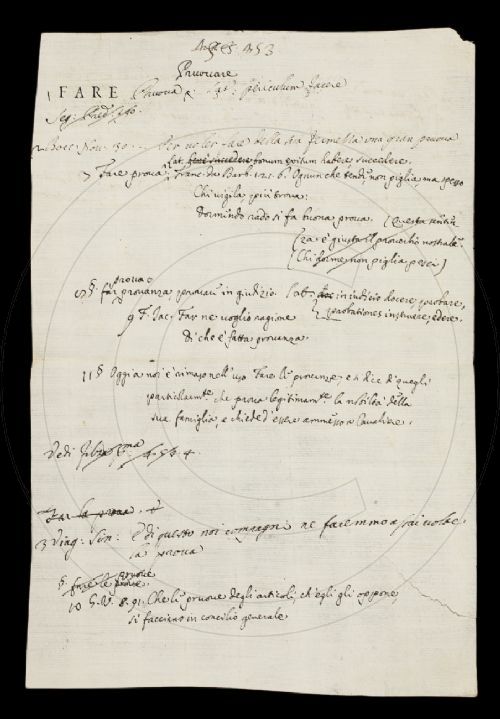 353
Pruovare
1 FARE Pruova §. Lat. periculum facere
Seg. Pred. 240.
2 Bocc. Nov. 30. Per voler fare della sua fermezza una gran pruova
Lat. bonum exitum habere, succedere.
7 Fare prova. Franc. da Barb. 121. 6. Ognun che tende, non piglia, ma spesso
Chi vigila più trova:
Dormendo rado si fa buona prova. (Questa senten
(za è giusta il proverbio nostrale
(Chi dorme non piglia pesci)
prova e
8 §. far provanza provare in giudizio. Lat. in iudicio docere, probare,
probationes instruere, edere.
9 F. Iac. Tar ne voglio ragione
di che è fatta provanza.
11 § Oggi a noi è rimaso nell'uso Fare le provanze, e si dice di quegli
particolarmte. che prova legitimamte. la nobiltà della
sua famiglia, e chiede d'essere ammesso a Cavaliere.
Vedi
Far la prova
3 Viag. Sin. E di questo noi compagni ne facemmo assai volte
la pruova
pruove
§. fare le prove
10 G. V. 8. 91. Che le pruove degli articoli, ch'egli gli oppone,
si facciano in concilio generale